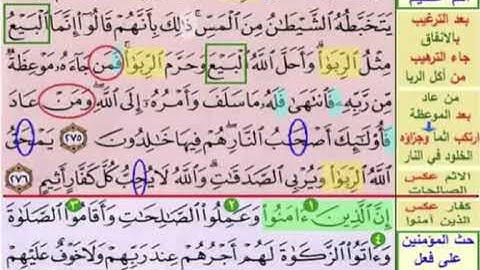 يَتَخَبَّطُهُ ٱلشَّيْطَٰنُ مِنَ ٱلْمَسِّ ذَٰلِكَ بِأَنَّهُمْ قَالُوٓا۟ إِنَّمَا ٱلْبَيْعُ
مِثْلُ ٱلرِّبَوٰا۟ وَأَحَلَّ ٱللَّهُ ٱلْبَيْعَ وَحَرَّمَ ٱلرِّبَوٰا۟ فَمَن جَآءَهُۥ مَوْعِظَةٌ
مِّن رَّبِّهِۦ فَٱنتَهَىٰ فَلَهُۥ مَا سَلَفَ وَأَمْرُهُۥٓ إِلَى ٱللَّهِ وَمَنْ عَادَ
فَأُو۟لَٰٓئِكَ أَصْحَٰبُ ٱلنَّارِ هُمْ فِيهَا خَٰلِدُونَ ٢٧٥ يَمْحَقُ
ٱللَّهُ ٱلرِّبَوٰا۟ وَيُرْبِى ٱلصَّدَقَٰتِ وَٱللَّهُ لَا يُحِبُّ كُلَّ كَفَّارٍ أَثِيمٍ ٢٧٦
١ ٢ ٣
إِنَّ ٱلَّذِينَ ءَامَنُوا۟ وَعَمِلُوا۟ ٱلصَّٰلِحَٰتِ وَأَقَامُوا۟ ٱلصَّلَوٰةَ
٤
وَءَاتَوُا۟ ٱلزَّكَوٰةَ لَهُمْ أَجْرُهُمْ عِندَ رَبِّهِمْ وَلَا خَوْفٌ عَلَيْهِمْ
بعد الترغيب
بالانفاق
جاء الترهيب
من أكل الربا
من عاد
بعد الموعظة
ارتكب اثماً وجزاؤه
الخلود في النار
الاثم عكس
الصالحات
كفار عكس
الذين آمنوا
حث المؤمنين
على فعل